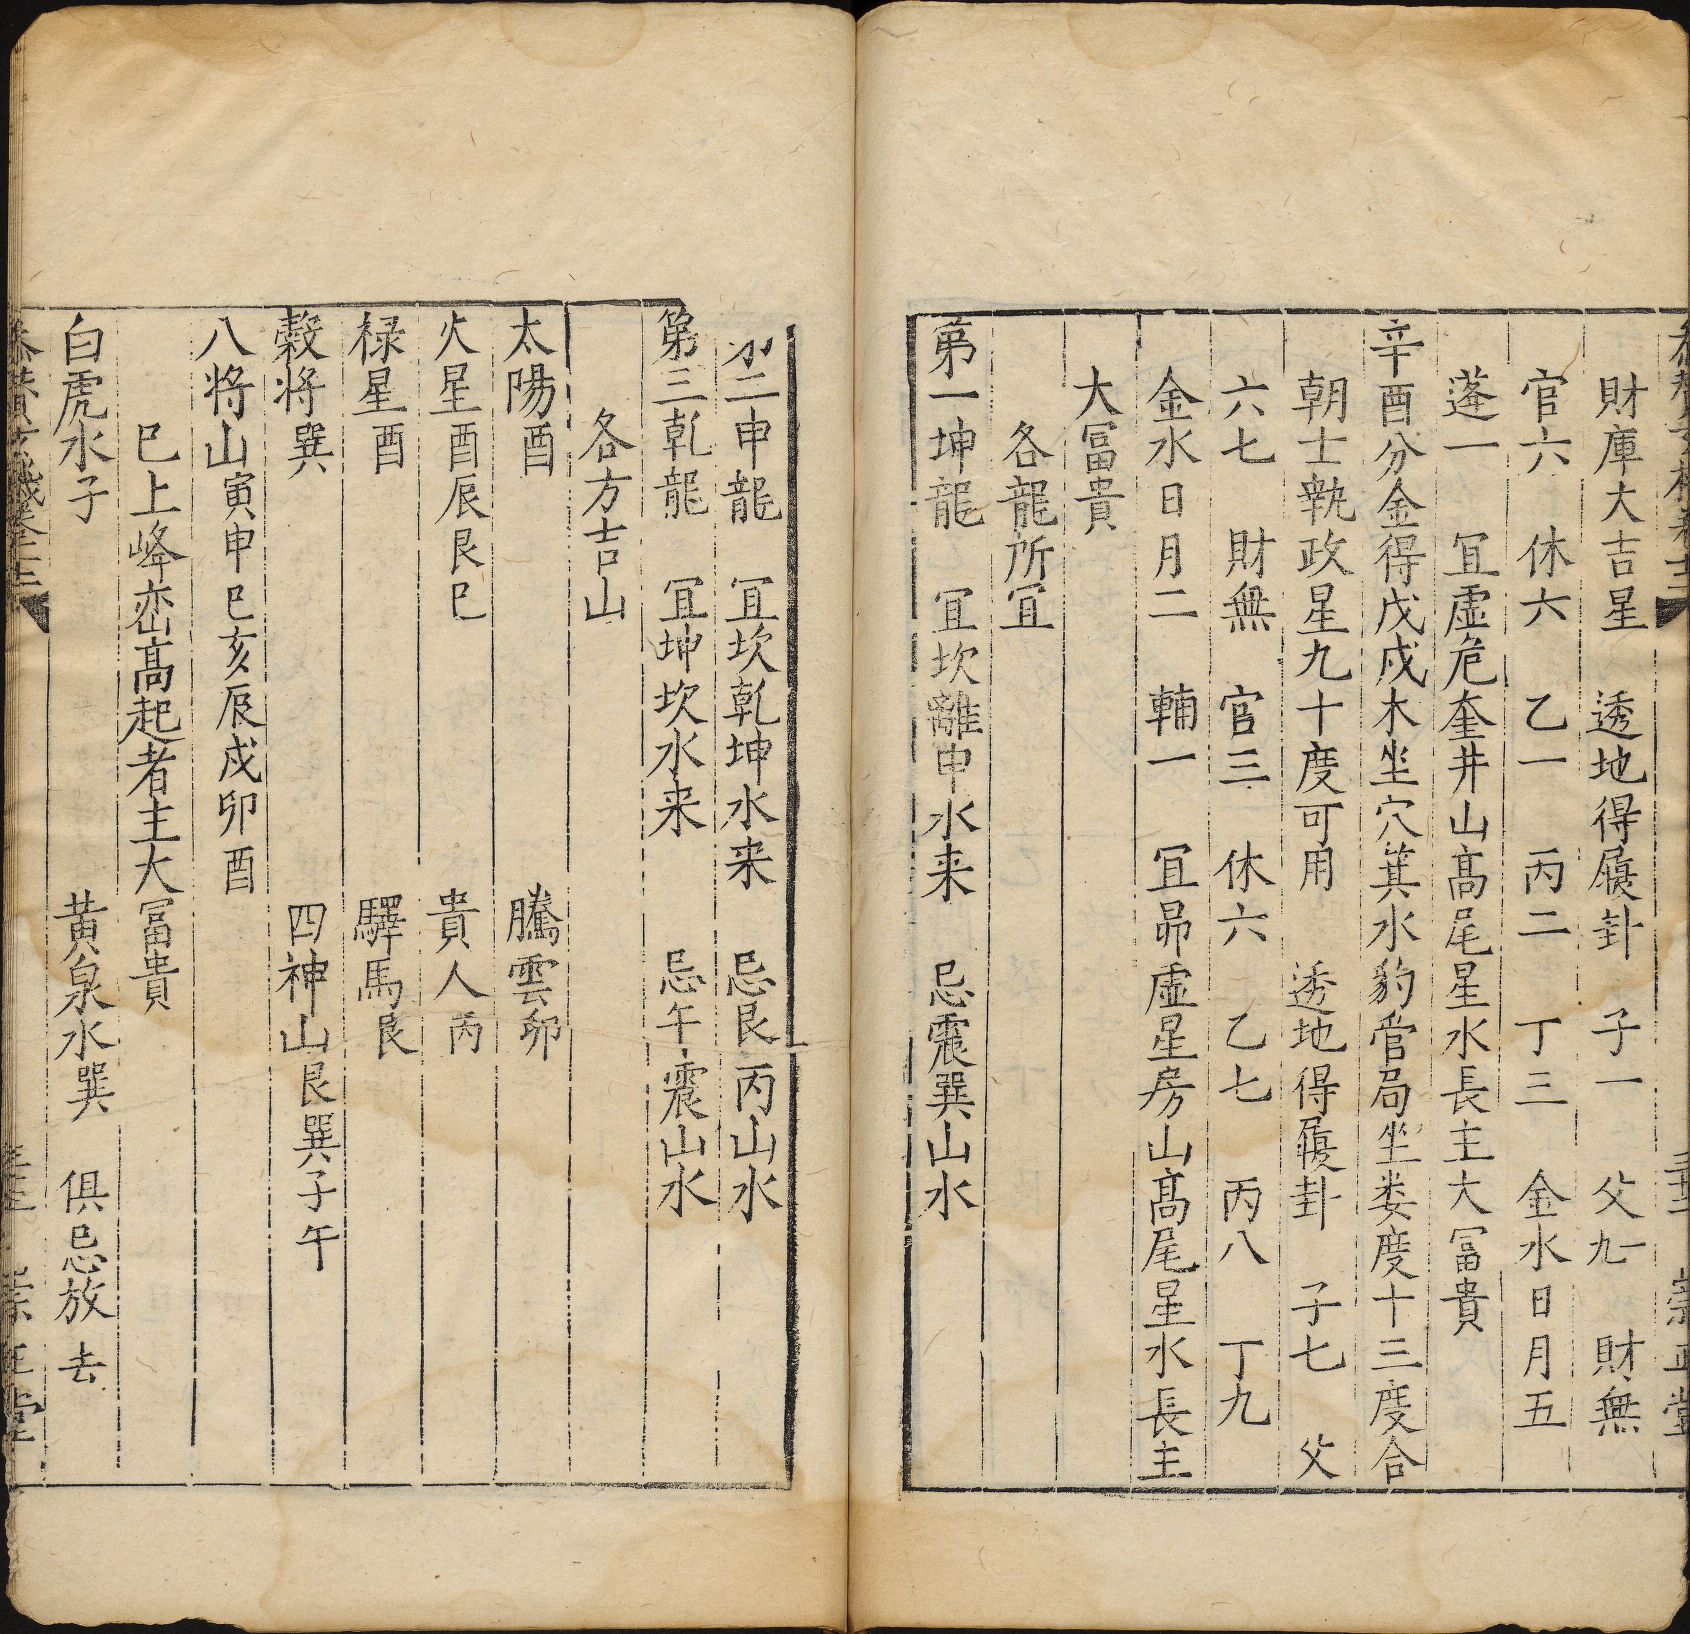 財庫大吉星　透地得履卦　子一　父九一　財無
官六　休六　乙一　丙二　丁三　金水日月五
蓬一　冝虛危奎井山髙尾星水長主大冨貴
辛酉分金得戊戌木坐穴箕水豹管局坐娄度十三度合
朝士執政星九十度可用　透地得履卦　子七　父
六七　財無　官三　休六　乙七　丙八　丁九
金水日月二　輔一　冝昴虛星房山髙尾星水長主
大冨貴
各龍所冝
第一坤龍　冝坎離申水来　忌震巽山水
二申龍　冝坎乹坤水来　忌艮丙山水
第三乹龍　冝坤坎水来　忌午震山水
各方吉山
太陽酉　騰雲卯
火星酉辰艮巳　貴人丙
禄星酉　驛馬艮
榖将巽　四神山艮巽子午
八将山寅申巳亥辰戌卯酉
巳上峰峦髙起者主大冨貴
白虎水子　黄泉水巽　俱忌放去